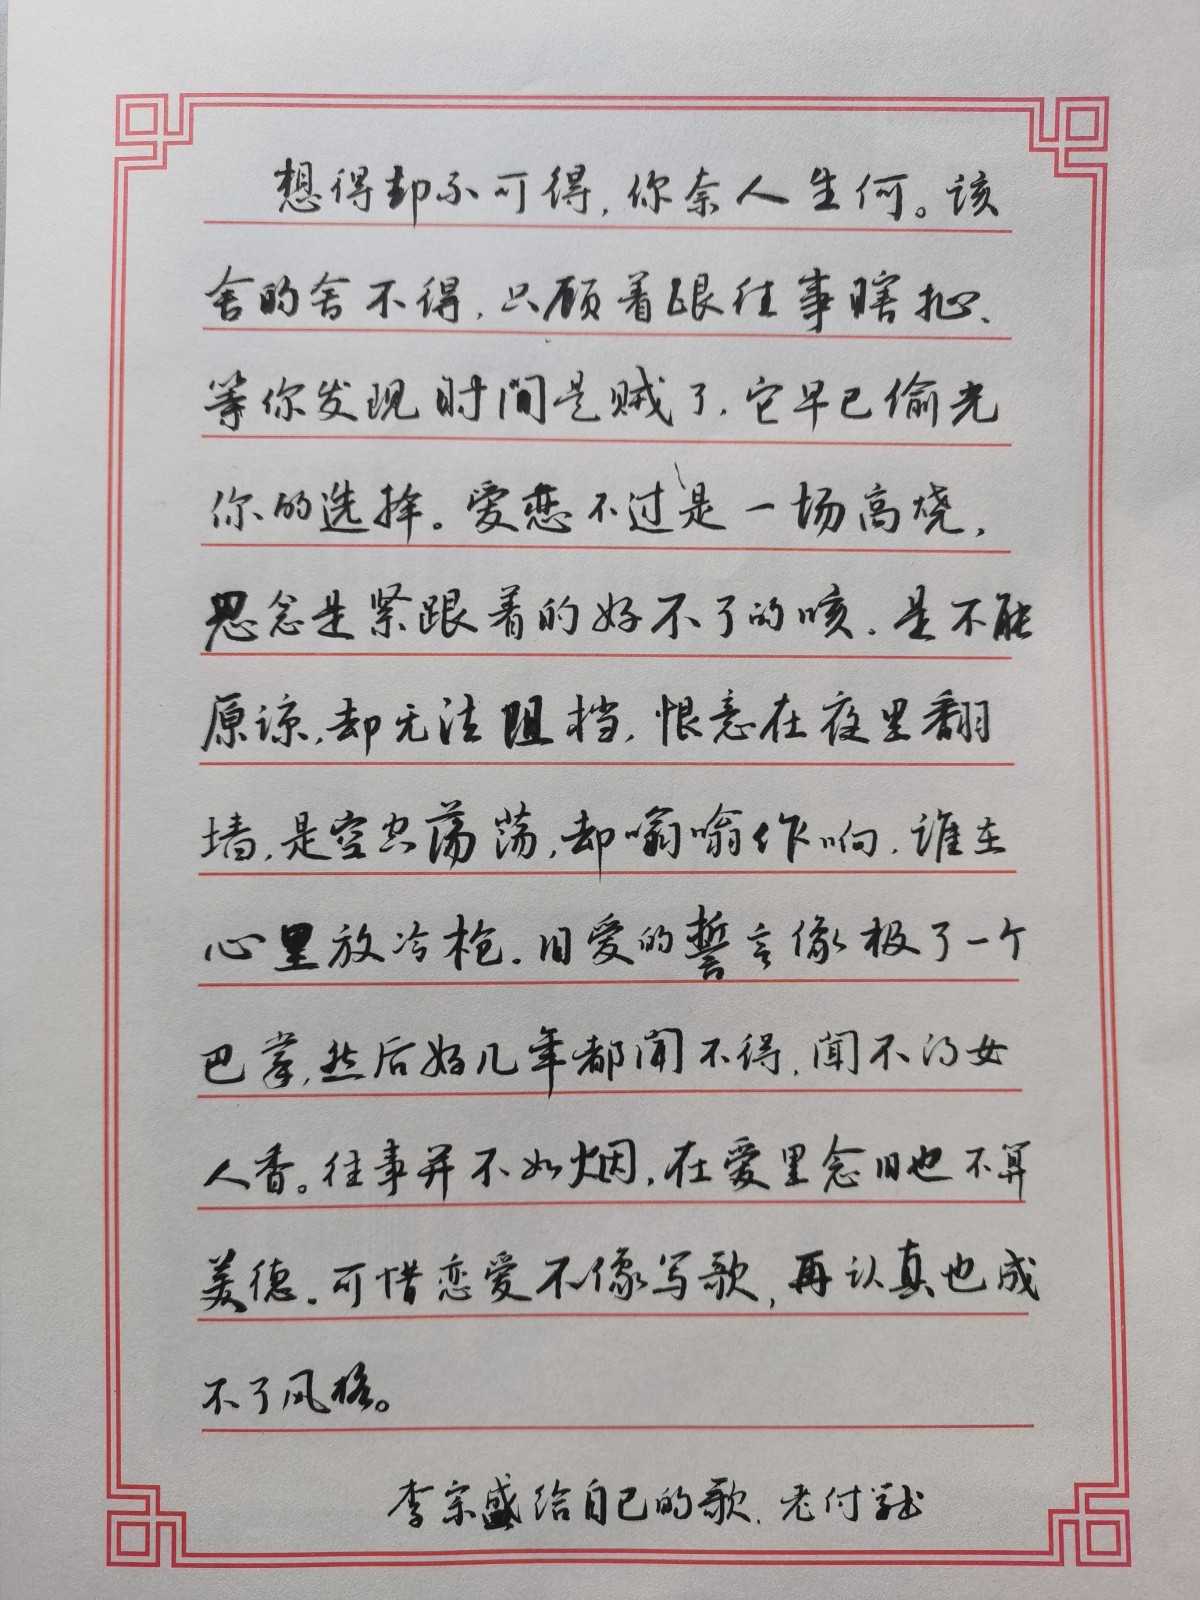 想得却不可得，你奈人生何。该
舍的舍不得，只顾着跟往事瞎扯、
等你发现时间是贼了，它早已偷光
你的选择。爱恋不过是一场高烧，
思念是紧跟着的好不了的咳，是不能
原谅，却无法阻挡，恨意在夜里翻
墙，是空空荡荡，却嗡嗡作响，谁在
心里放冷枪，旧爱的誓言像极了一个
巴掌，然后好几年都闻不得，闻不得女
人香。往事并不如烟，在爱里念旧也不算
美德。可惜恋爱不像写歌，再认真也成
不了风格。
李宗盛给自己的歌，老付